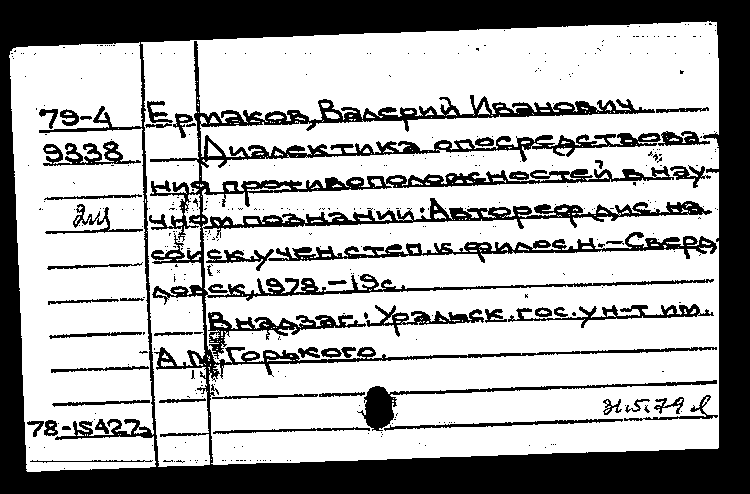 79-4 Ермаков, Валерий Иванович.
9338 Диалектика опосредствова-
ния противоположностей в нау-
чном познании: Автореф. дис. на
соиск. учен. степ. к. филос. н. - Сверд
ловск, 1978. - 19 с.
В надзаг.: Уральск. гос. ун-т им.
А.М. Горького.
31.5.79
78-15427